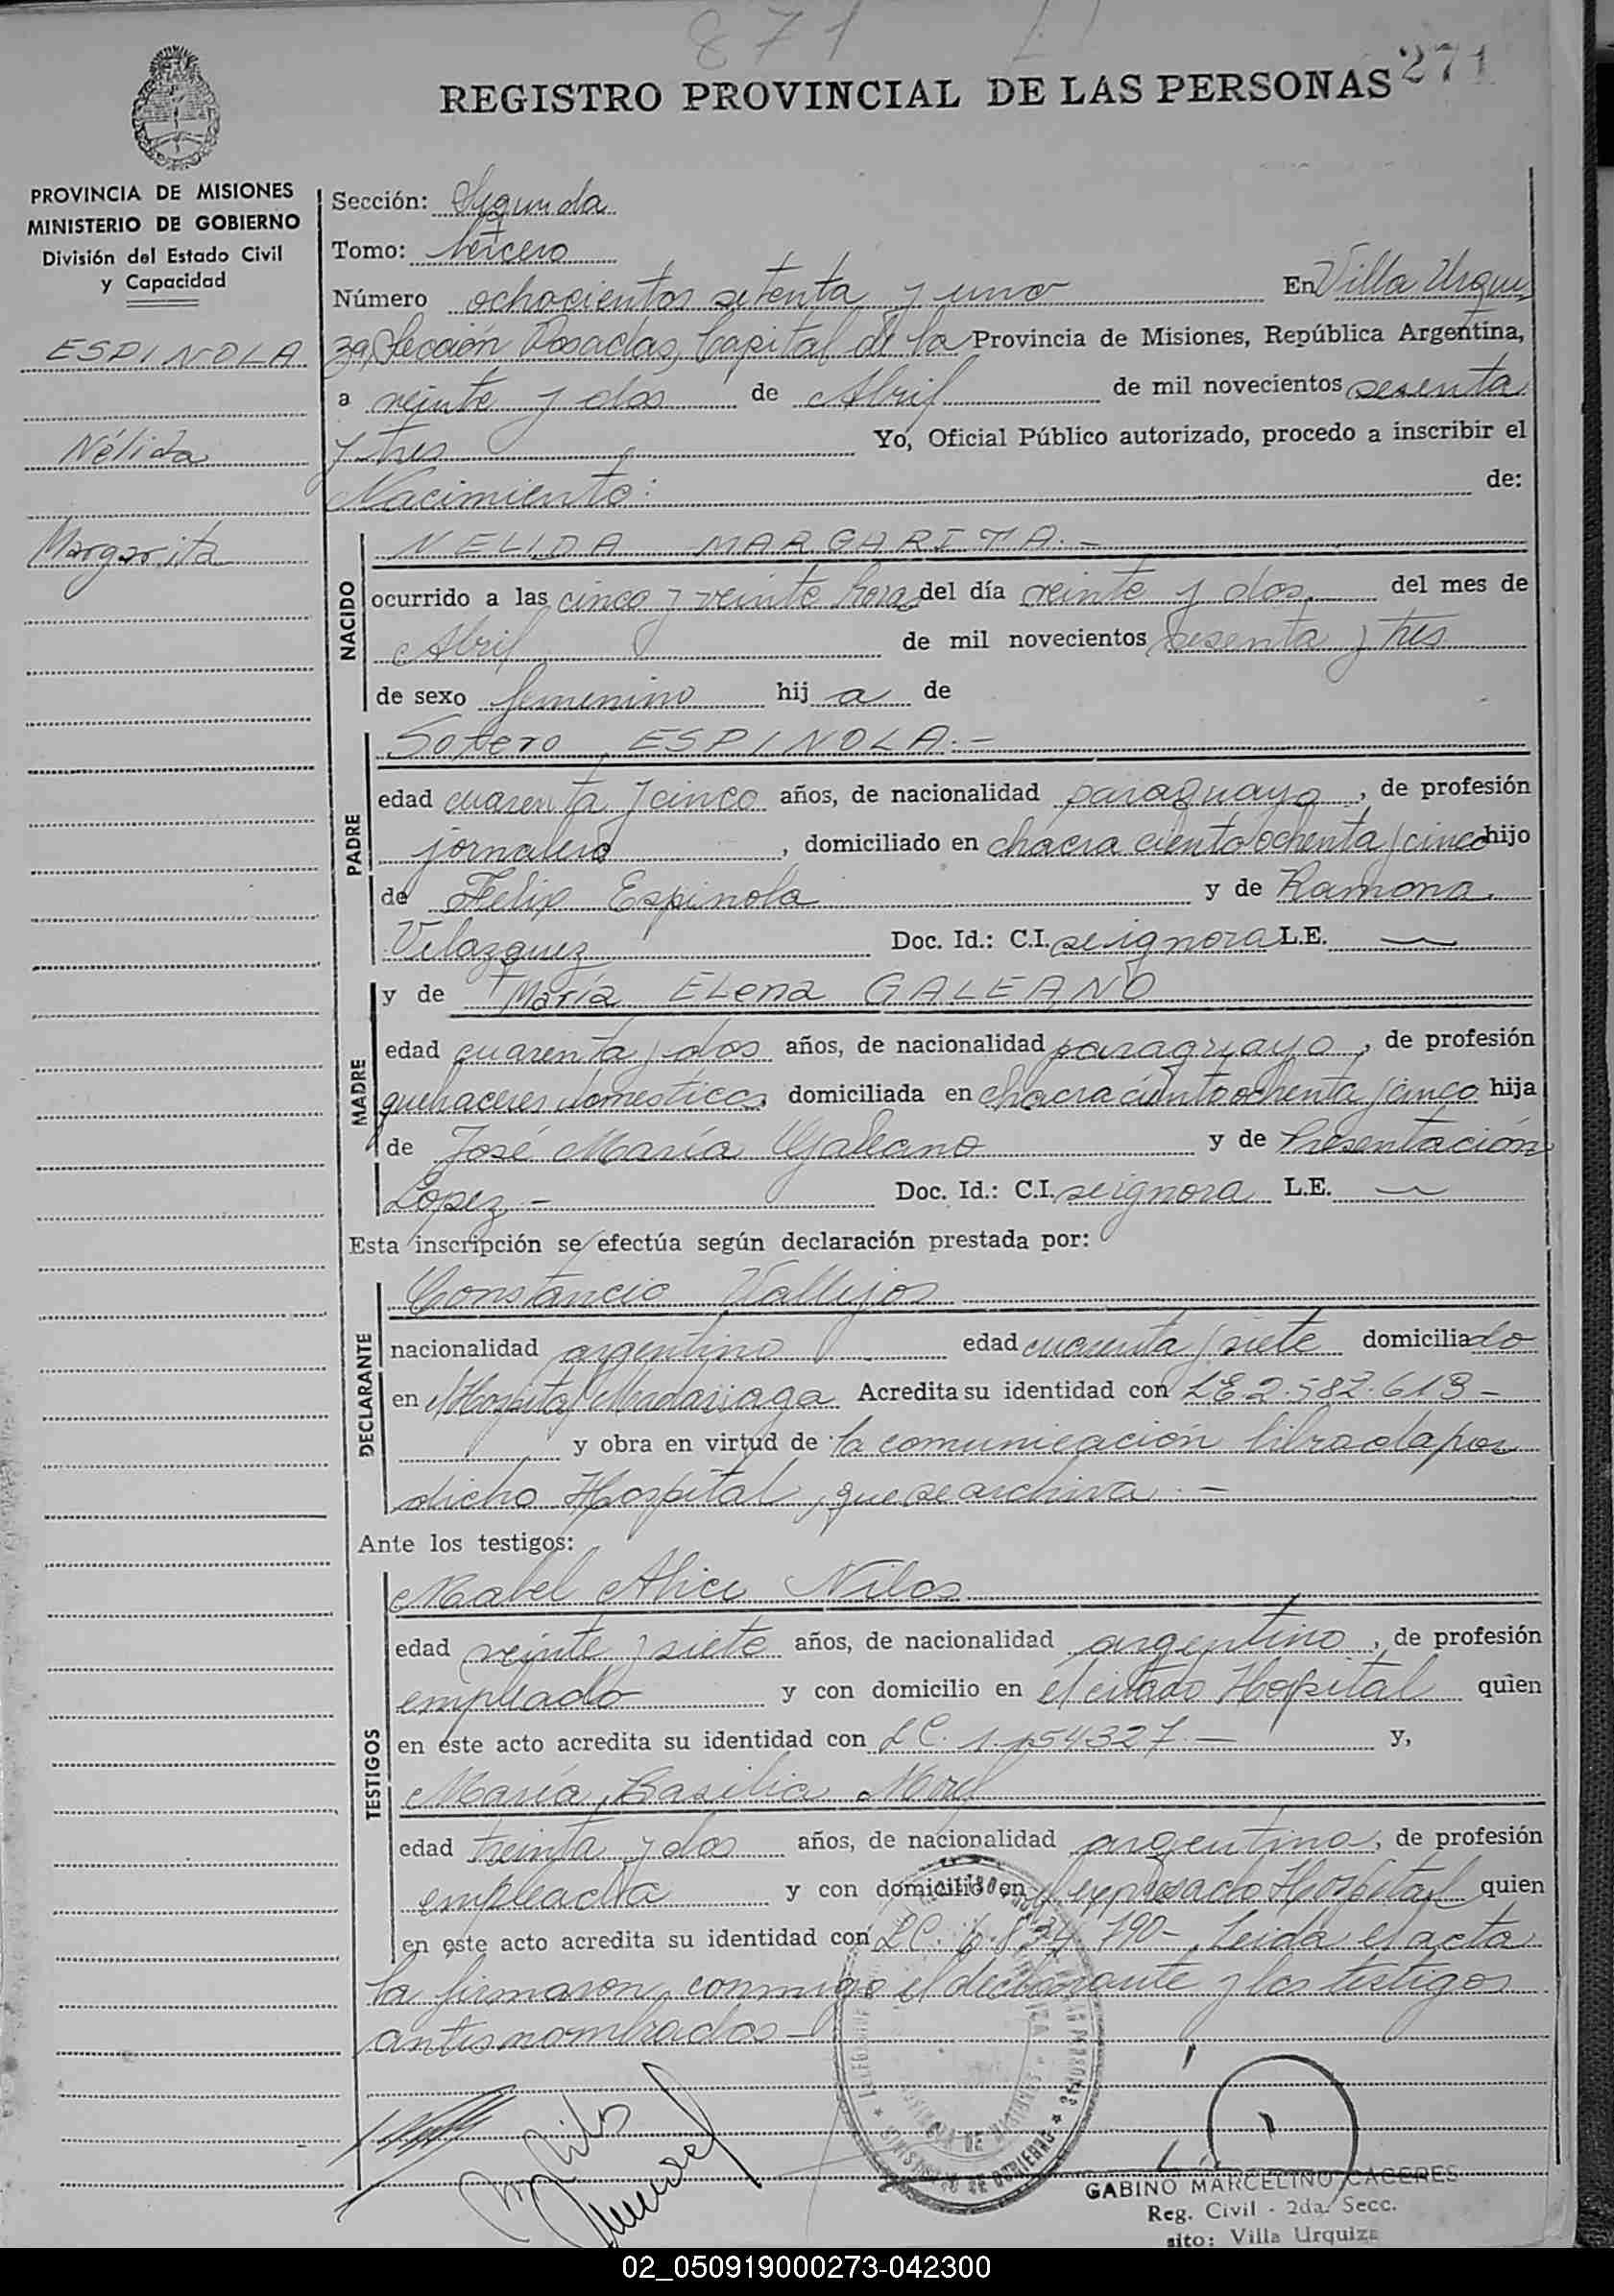 871
REGISTRO PROVINCIAL DE LAS PERSONAS 271
PROVINCIA DE MISIONES
MINISTERIO DE GOBIERNO
División del Estado Civil
y Capacidad
ESPINOLA
Nélida
Margarita
Sección: Segunda
Tomo: tercero
Número ochocientos setenta y uno En Villa Urqui
za, Sección Posadas, Capital de la Provincia de Misiones, República Argentina,
a veinte y dos de Abril de mil novecientos sesenta
y tres Yo, Oficial Público autorizado, procedo a inscribir el
Nacimiento: de:
NACIDO
NELIDA MARGARITA.-
ocurrido a las cinco y veinte horas del día veinte y dos del mes de
Abril de mil novecientos sesenta y tres
de sexo femenino hij a de
PADRE
Sotero ESPINOLA.-
edad cuarenta y cinco años, de nacionalidad paraguayo, de profesión
jornalero, domiciliado en chacra ciento ochenta y cinco hijo
de Felix Espinola y de Ramona
Velazquez Doc. Id.: C.I. se ignora L.E. —
MADRE
y de María Elena GALEANO
edad cuarenta y dos años, de nacionalidad paraguayo, de profesión
quehaceres domesticos domiciliada en chacra ciento ochenta y cinco hija
de José María Galeano y de Presentación
López.- Doc. Id.: C.I. se ignora L.E. —
Esta inscripción se efectúa según declaración prestada por:
DECLARANTE
Constancio Vallejos
nacionalidad argentino edad cuarenta y siete domiciliado
en Hospital Madariaga Acredita su identidad con LE 2.582.613-
y obra en virtud de la comunicación librada por
dicho Hospital, que se archiva.-
Ante los testigos:
TESTIGOS
Mabel Alice Nilos
edad veinte y siete años, de nacionalidad argentino, de profesión
empleado y con domicilio en el citado Hospital quien
en este acto acredita su identidad con LC. 1.154327.- y,
María Basilia Morel
edad treinta y dos años, de nacionalidad argentina, de profesión
empleada y con domicilio en el expresado Hospital quien
en este acto acredita su identidad con LC. 6.834.790- Leida el acta
la firmaron conmigo el declarante y los testigos
antes nombrados-
GABINO MARCELINO CACERES
Reg. Civil - 2da. Secc.
sito: Villa Urquiza
02_050919000273-042300